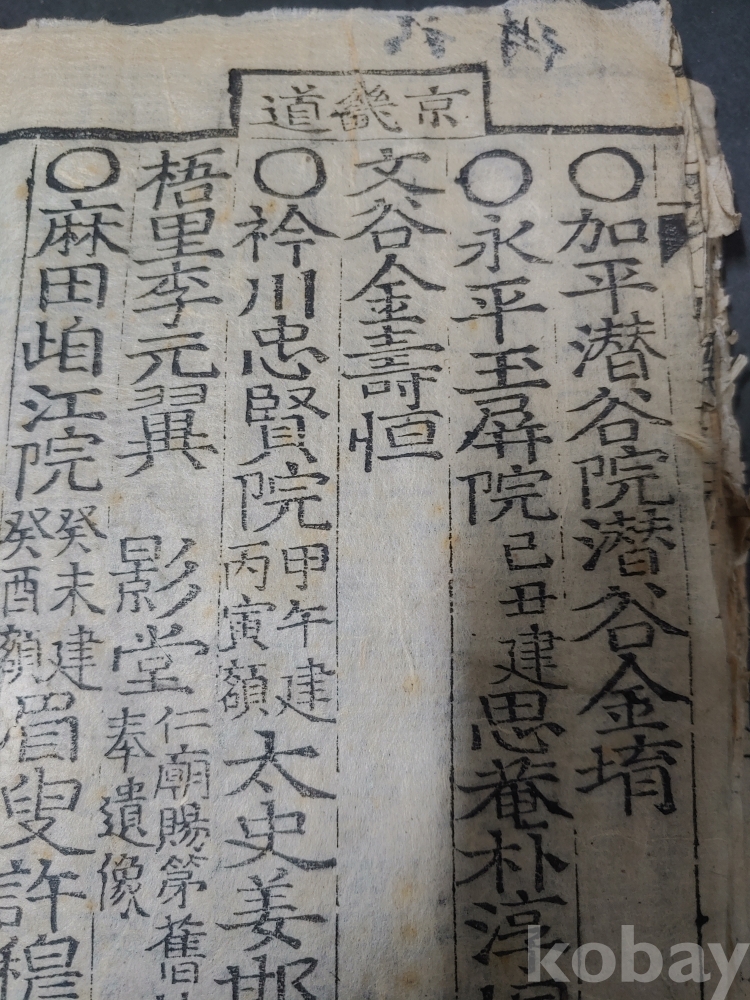 京畿道
○加平潛谷院潛谷金堉
○永平玉屏院己丑建思菴朴淳
文谷金壽恒
○衿川忠賢院甲午建丙寅額太史姜邯
梧里李元翼 影堂仁廟賜第舊奉遺像
○麻田湄江院癸未建癸酉額眉叟許穆
kobay